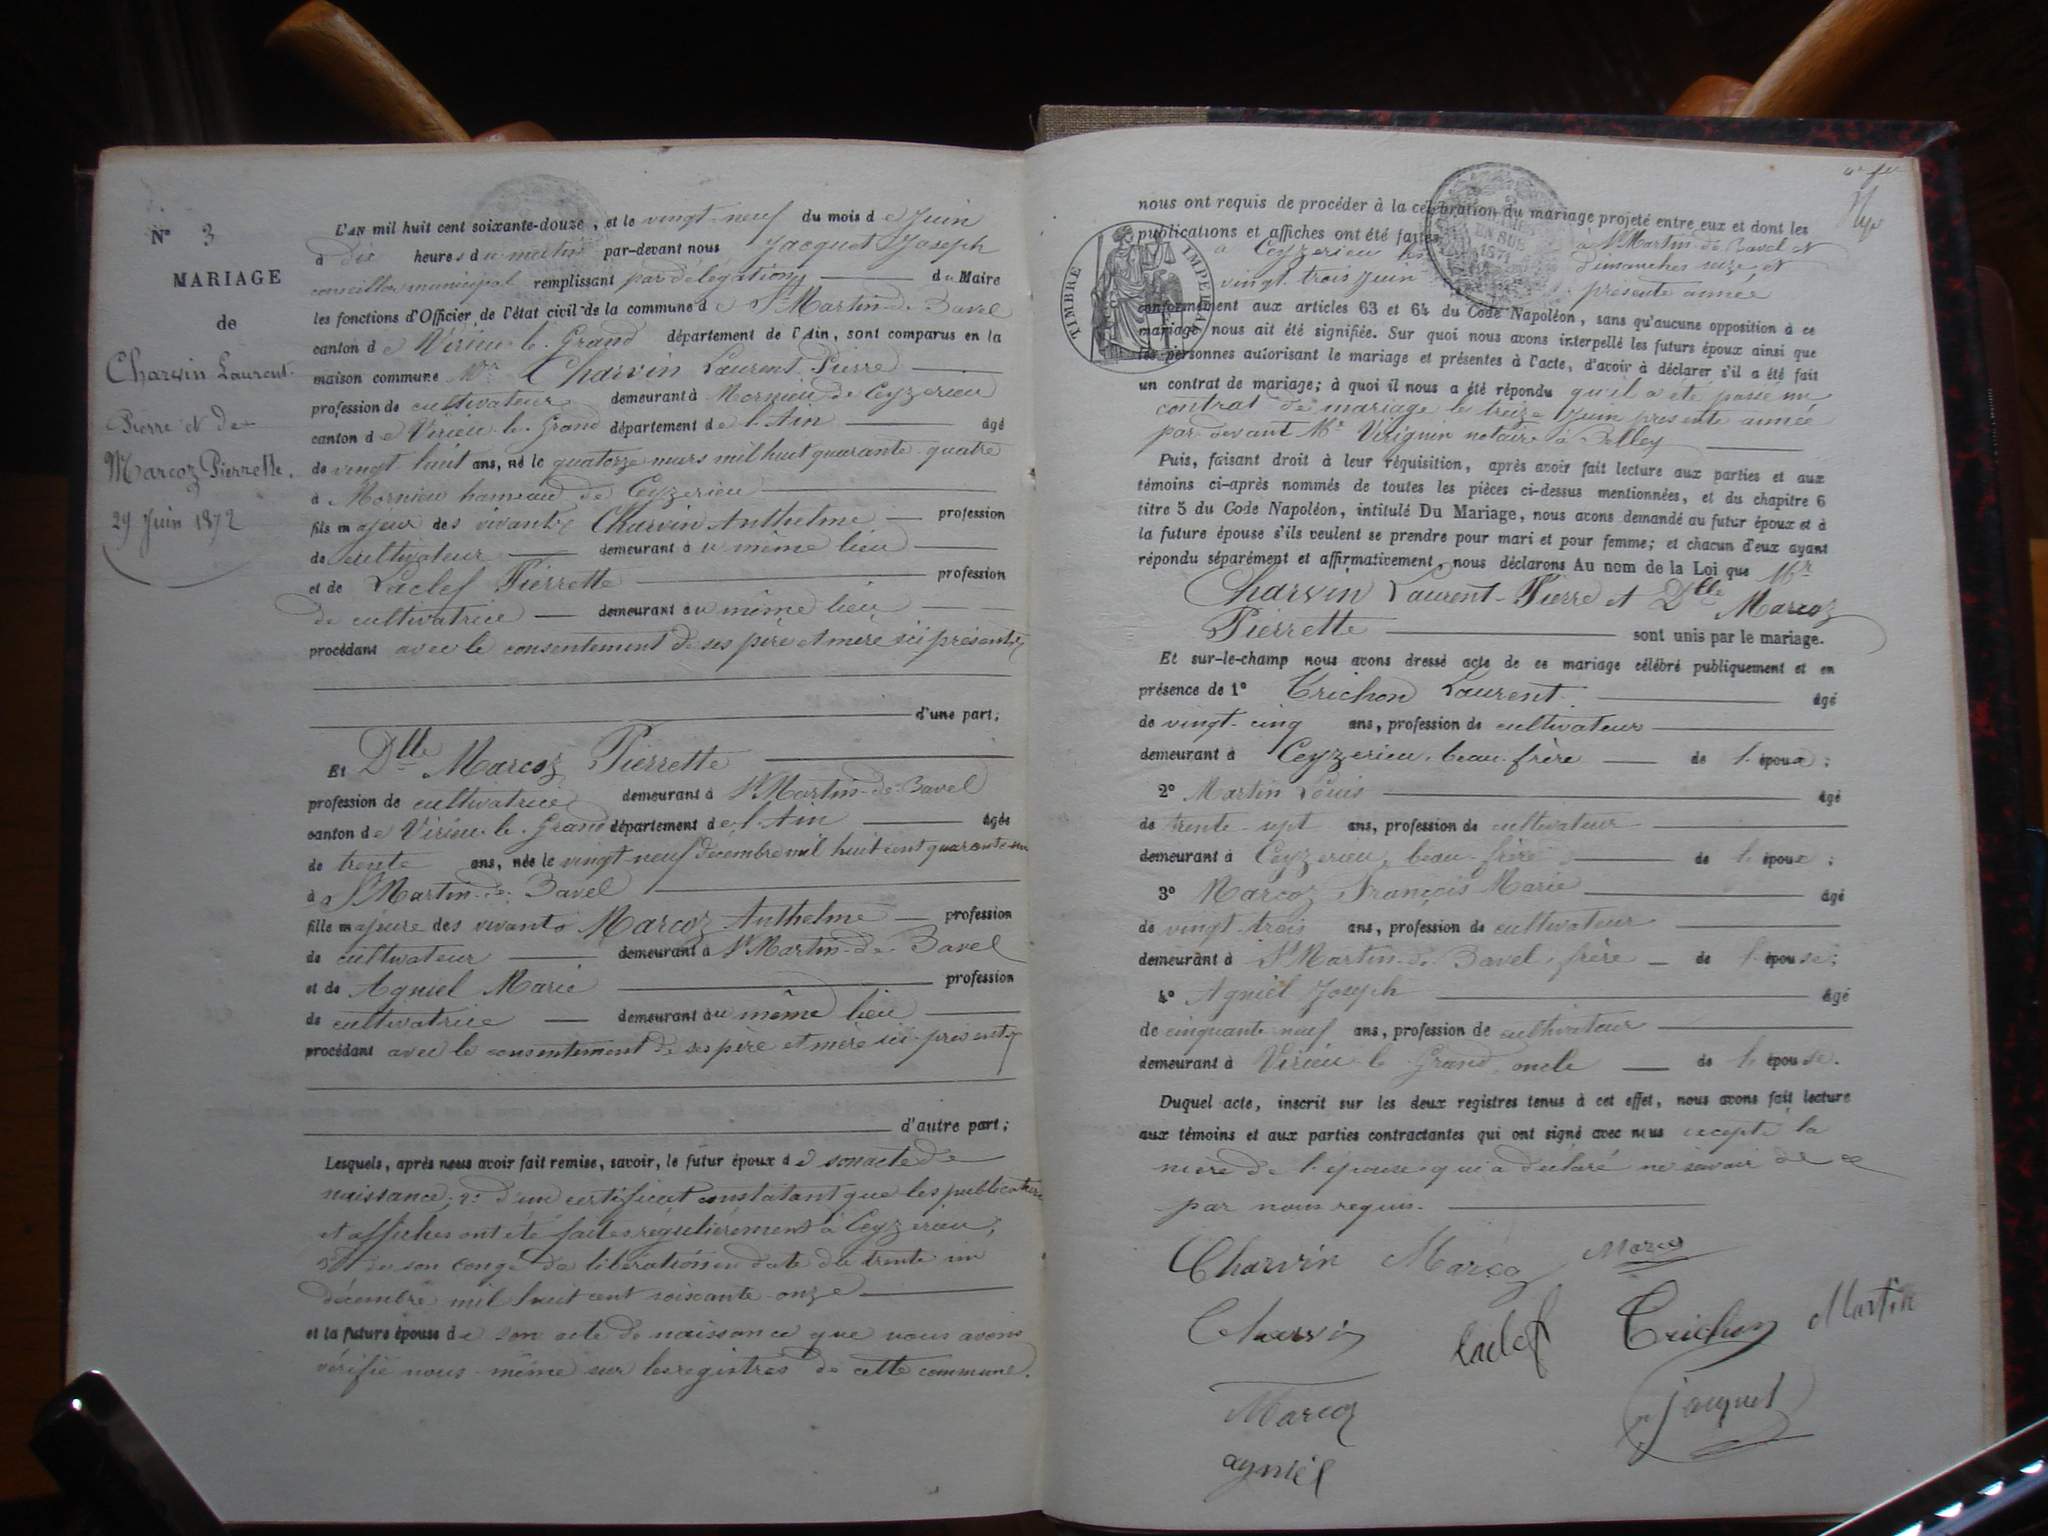 N° 3
MARIAGE
de
Charvin Laurent-
Pierre et de
Marcoz Pierrette.
29 Juin 1872
L'AN mil huit cent soixante-douze, et le vingt-neuf du mois de Juin
à dix heures du matin par-devant nous Jacquet Joseph
conseiller municipal remplissant par délégation du Maire
les fonctions d'Officier de l'état civil de la commune de St Martin-de-Bavel
canton de Virieu-le-Grand département de l'Ain, sont comparus en la
maison commune Mr Charvin Laurent-Pierre
profession de cultivateur demeurant à Mornieu de Ceyzerieu
canton de Virieu-le-Grand département de l'Ain âgé
de vingt huit ans, né le quatorze mars mil huit quarante-quatre
à Mornieu hameau de Ceyzerieu
fils majeur des vivants Charvin Anthelme profession
de cultivateur demeurant au même lieu
et de Laclef Pierrette profession
de cultivatrice demeurant au même lieu
procédant avec le consentement de ses père et mère ici présents
d'une part;
Et Dlle Marcoz Pierrette
profession de cultivatrice demeurant à St Martin-de-Bavel
canton de Virieu-le-Grand département de l'Ain âgée
de trente ans, née le vingt-neuf décembre mil huit cent quarante-un
à St Martin-de-Bavel
fille majeure des vivants Marcoz Anthelme profession
de cultivateur demeurant à St Martin-de-Bavel
et de Agniel Marie profession
de cultivatrice demeurant au même lieu
procédant avec le consentement de ses père et mère ici présents
d'autre part;
Lesquels, après nous avoir fait remise, savoir, le futur époux de son acte de
naissance; 2° d'un certificat constatant que les publications
et affiches ont été faites régulièrement à Ceyzerieu;
3° de son congé de libération en date du trente un
décembre mil huit cent soixante-onze
et la future épouse de son acte de naissance que nous avons
vérifié nous-même sur les registres de cette commune.
nous ont requis de procéder à la célébration du mariage projeté entre eux et dont les
publications et affiches ont été faites à St Martin-de-Bavel et
à Ceyzerieu les dimanches seize et
vingt trois Juin présente année
TIMBRE IMPÉRIAL
EN SUS
1871
conformément aux articles 63 et 64 du Code Napoléon, sans qu'aucune opposition à ce
mariage nous ait été signifiée. Sur quoi nous avons interpellé les futurs époux ainsi que
les personnes autorisant le mariage et présentes à l'acte, d'avoir à déclarer s'il a été fait
un contrat de mariage; à quoi il nous a été répondu qu'il a été passé un
contrat de mariage le treize Juin présente année
par devant Me notaire à Belley
Puis, faisant droit à leur réquisition, après avoir fait lecture aux parties et aux
témoins ci-après nommés de toutes les pièces ci-dessus mentionnées, et du chapitre 6
titre 5 du Code Napoléon, intitulé Du Mariage, nous avons demandé au futur époux et à
la future épouse s'ils veulent se prendre pour mari et pour femme; et chacun d'eux ayant
répondu séparément et affirmativement, nous déclarons Au nom de la Loi que Mr
Charvin Laurent-Pierre et Dlle Marcoz
Pierrette sont unis par le mariage.
Et sur-le-champ nous avons dressé acte de ce mariage célébré publiquement et en
présence de 1° Trichon Laurent âgé
de vingt-cinq ans, profession de cultivateur
demeurant à Ceyzerieu, beau-frère de l'époux;
2° Martin Louis âgé
de trente-sept ans, profession de cultivateur
demeurant à Ceyzerieu, beau-frère de l'époux;
3° Marcoz François Marie âgé
de vingt-trois ans, profession de cultivateur
demeurant à St Martin-de-Bavel, frère de l'épouse;
4° Agniel Joseph âgé
de cinquante-neuf ans, profession de cultivateur
demeurant à Virieu le Grand, oncle de l'épouse.
Duquel acte, inscrit sur les deux registres tenus à cet effet, nous avons fait lecture
aux témoins et aux parties contractantes qui ont signé avec nous excepté la
mère de l'épouse qui a déclaré ne savoir de ce
par nous requis.
Charvin Marcoz Marcoz
Charvin Laclef Trichon Martin
Marcoz Jacquet
agniel